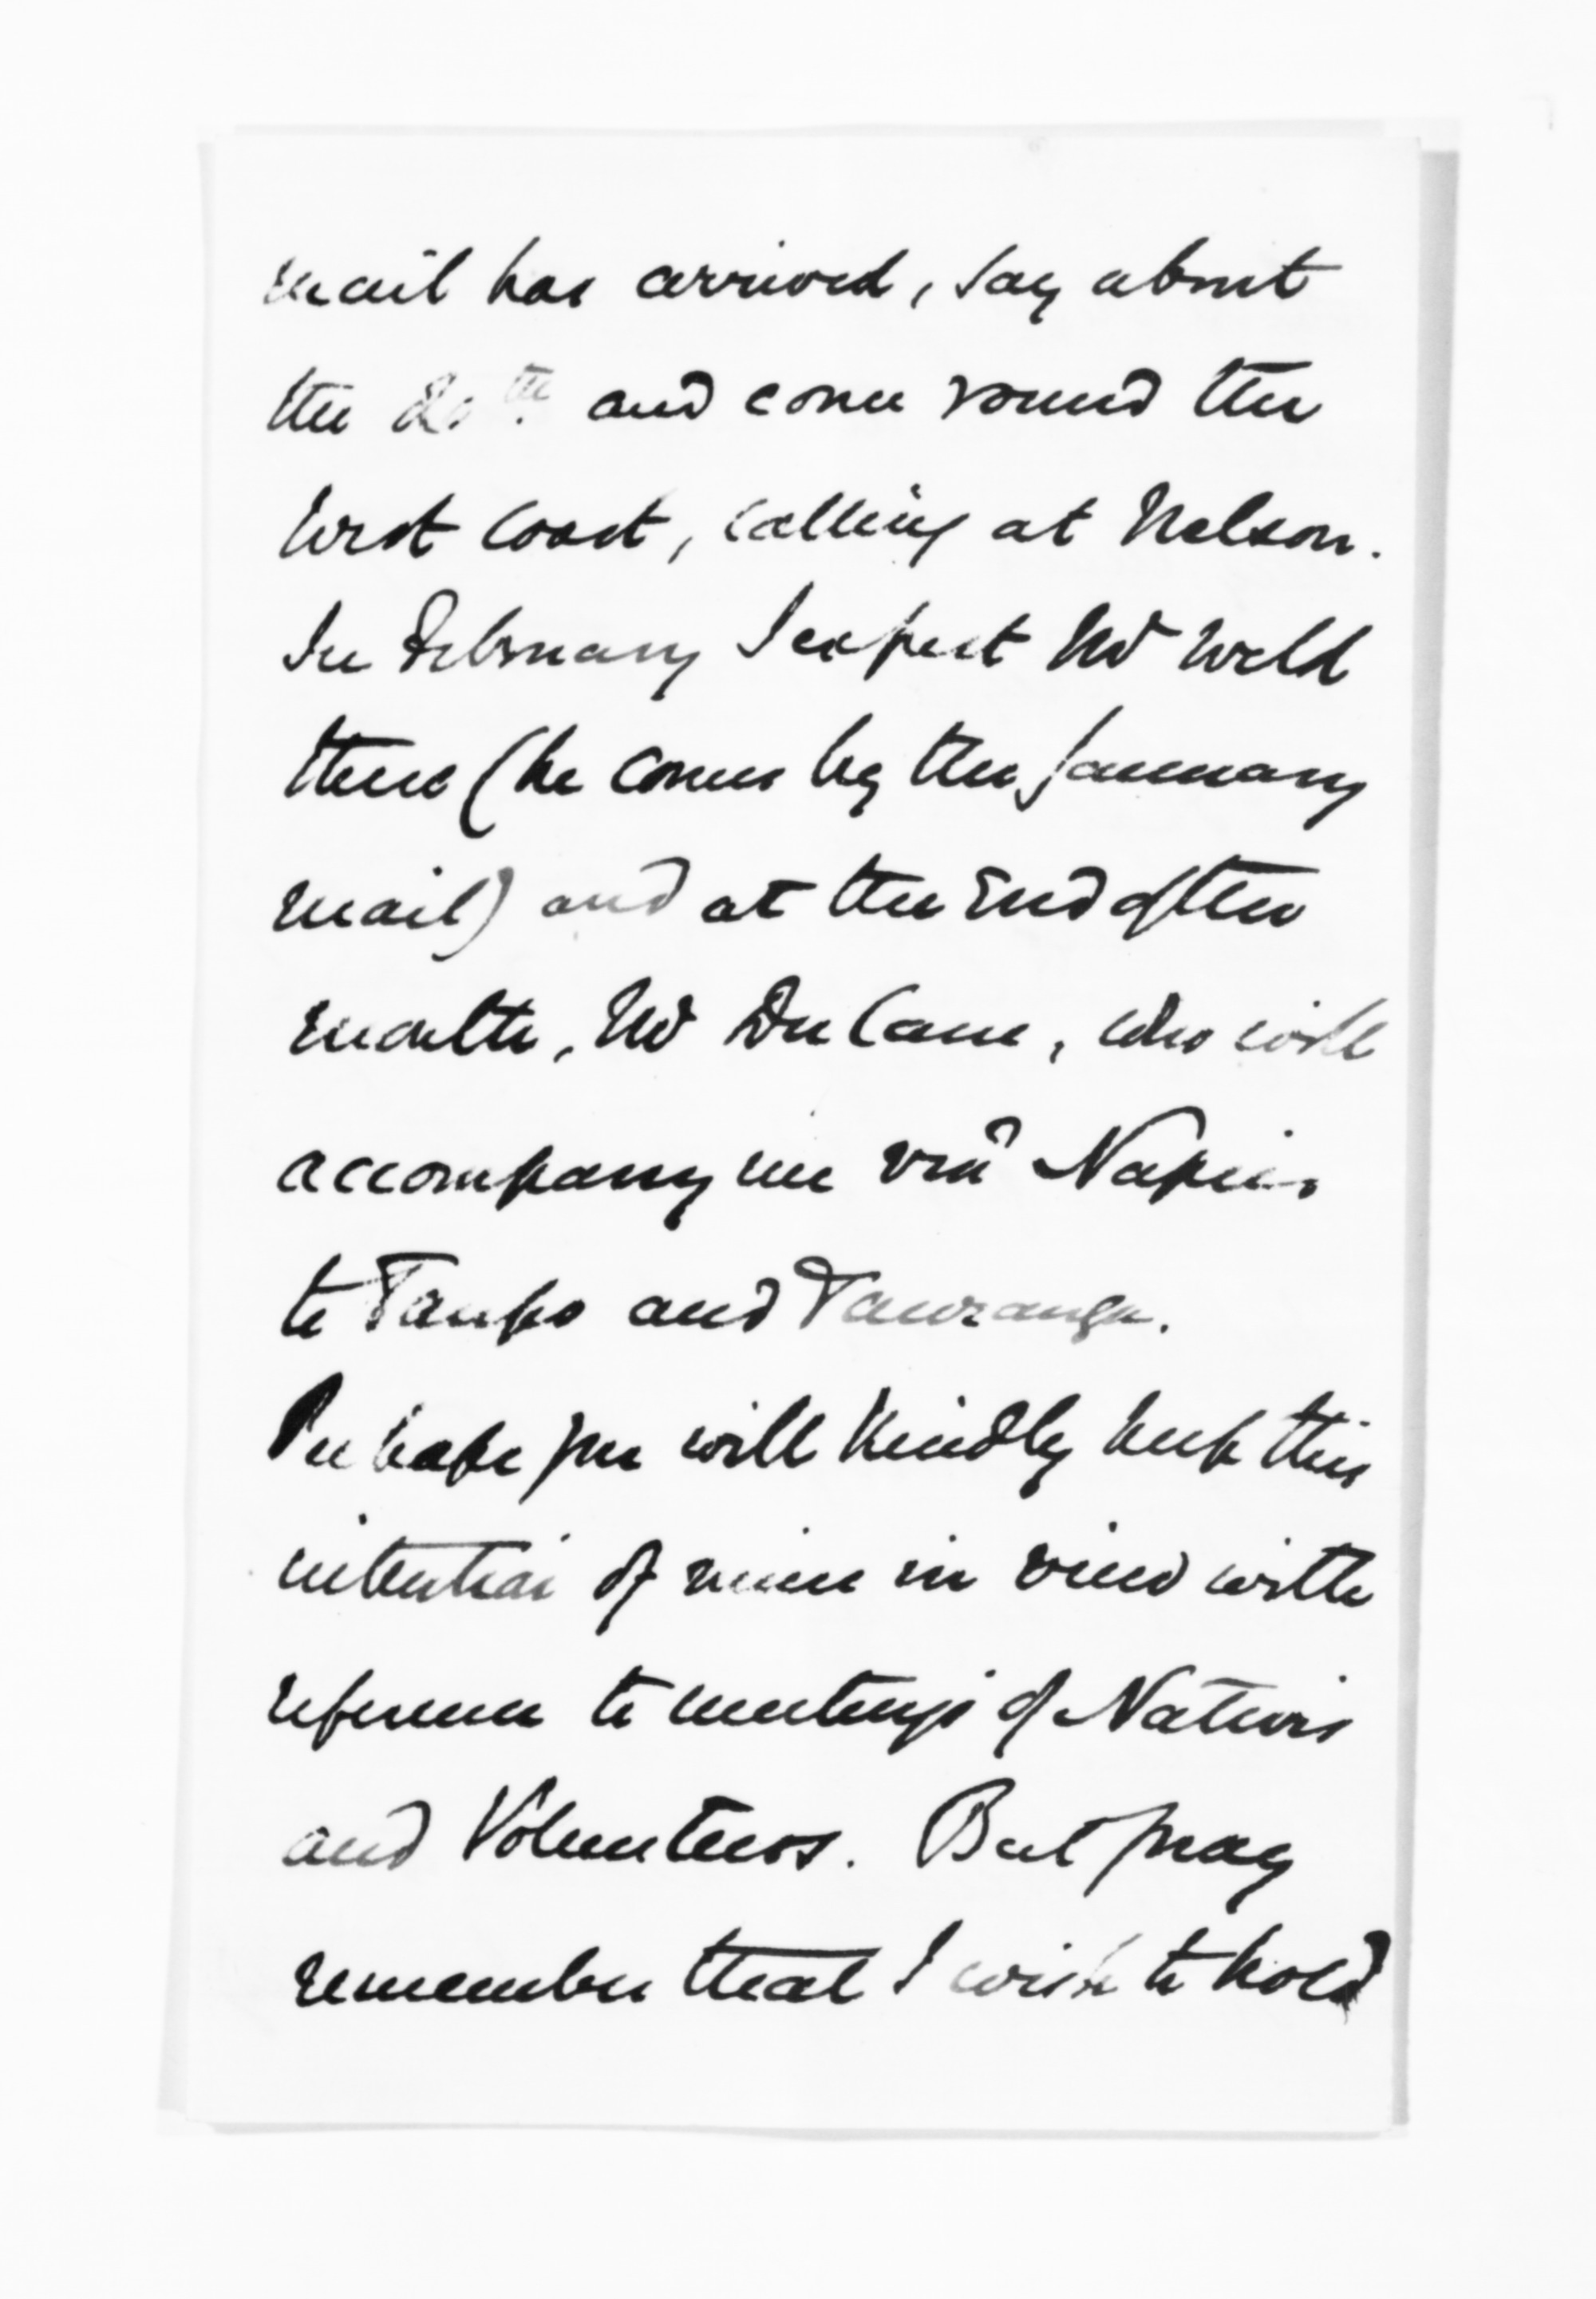 mail has arrived, say about
the 20th. and come round the
West Coast, calling at Nelson.
In February I expect Mr Weld
there (he comes by the January
mail) and at the End of the
month, Mr Du Cane, who will
accompany me viâ Napier
to Taupo and Tauranga.
Perhaps you will kindly keep this
intention of mine in view with
reference to meetings of Natives
and Volunteers. But pray
remember that I wish to hold